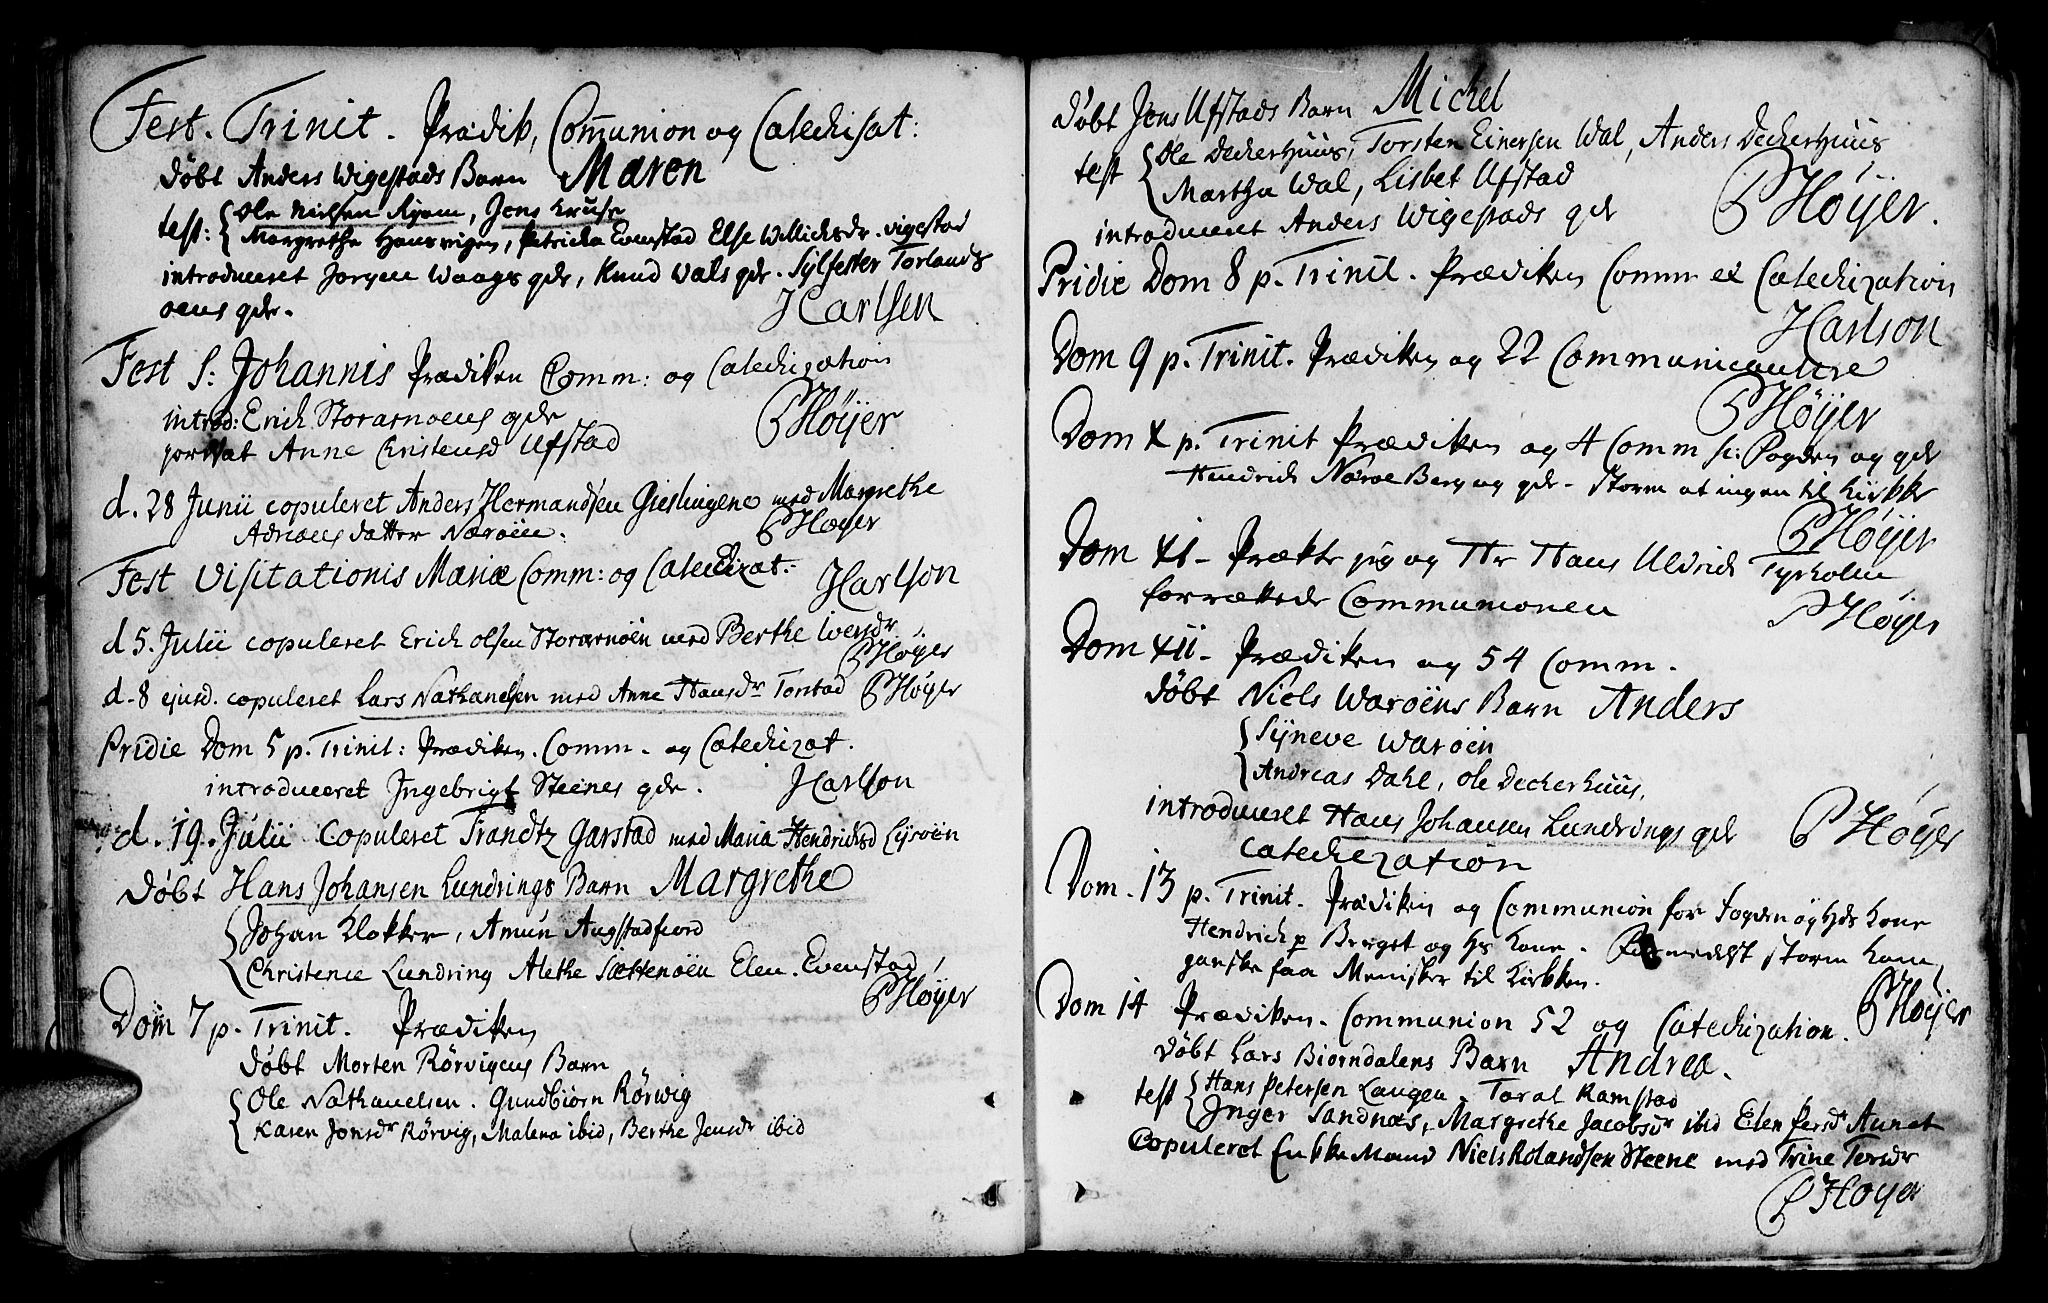 Fest. Trinit. Prædik, Communion og Catechisat:
Døbt Anders Wigestads Barn Maren
test: Ole Nielsen Ryem, Jens Kruse
Margrethe Hansvigen, Petricka Evenstad Else Willichsdr. vigestad
introduceret Jørgen Waags qde, Knud Wals qde. Sylfester Torlands
oens qde.
HCarlsen
Fest S: Johannis Prædiken Comm: og Catechization
introd: Erich Storarnoens qde
PHöijer
Anne Christensd Ufstad
d. 28 Junii copuleret Anders Hermandsen Gieslingene med Margrethe
Adriansdatter Nærøen.
PHöyer
Fest Visitationis Mariæ Comm: og Catechizat:
HCarlson
d 5. Julii copuleret Erich olsen Storarnöen med Berthe Iversdr
PHöyer
d. 8 ejusd. copuleret Lars Nathanelsen med Anne Hansdr Torstad PHöyer
Pridie Dom 5 p. Trinit: Prædiken. Comm. og Catechizat.
introduceret Ingebrigt Steenes qde.
HCarlson
d. 19. Julii Copuleret Frandtz Garstad med Maria Hendrichsd Lyröen
Døbt Hans Johansen Lundrings Barn Margrethe
Johan Klokker, Amun Augstadfiord
Christence Lundring Alethe Sættenöen Elen Evenstad
PHöijer
Dom 7 p. Trinit. Prædiken
Døbt Morten Rörvigens Barn
Ole Nathanelsen. Gundbiörn Rörwig
Karen Jonsdr Rörvig, Malena ibid, Berthe Jensdr ibid
Døbt Jens Ufstads Barn Michel
test Ole Deckerhuus, Torsten Einersen Wal, Anders Deckerhuus
Martha Wal, Lisbet Ufstad
introduceret Anders Wigestads qde
PHöijer.
Pridie Dom 8 p. Trinit. Prædiken Comm et Catechization
HCarlson
Dom 9 p. Trinit. Prædiken og 22 Communicantere
PHöijer
Dom X p. Trinit Prædiken og 4 Comm sc: Fogden og qde
Hendrich Nærøe Berg og qde. Storm at ingen til Kirkke
PHöijer
Dom XI. Prækte jeg og Hr Hans Uldrich Tyrholm
forrettede Communionen
PHöyer
Dom XII. Prædiken og 54 Comm.
Døbt Niels Waröens Barn Anders
Syneve Waröen
Andreas Dahl, Ole Deckerhuus,
introduceret Hans Johansen Lundrings qde
PHöyer
Catechization
Dom. 13 p. Trinit. Prædiken og Communion for Fogden og hds Kone
Hendrich p Berget og hs Kone. Formedelst storm kom
ganske faa Menisker til Kirkken.
PHöijer
Dom 14 Prædiken. Communion 52 og Catechization.
Døbt Lars Biorndalens Barn Andrea.
test Hans Petersen Laugen Toral Ramstad
Inger Sandnæs, Margrethe Jacobsdr ibid Elen Persdr Aunet
Copuleret Enkke Mand Niels Rolandsen Steene med Trine Torsdr
PHöyer